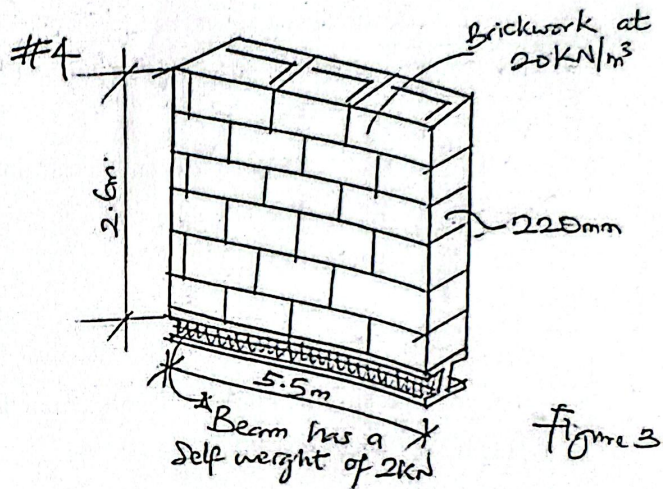 #4
Brickwork at
20KN/m³
2.6m
220mm
5.5m
Beam has a
Self weight of 2KN
Figure 3